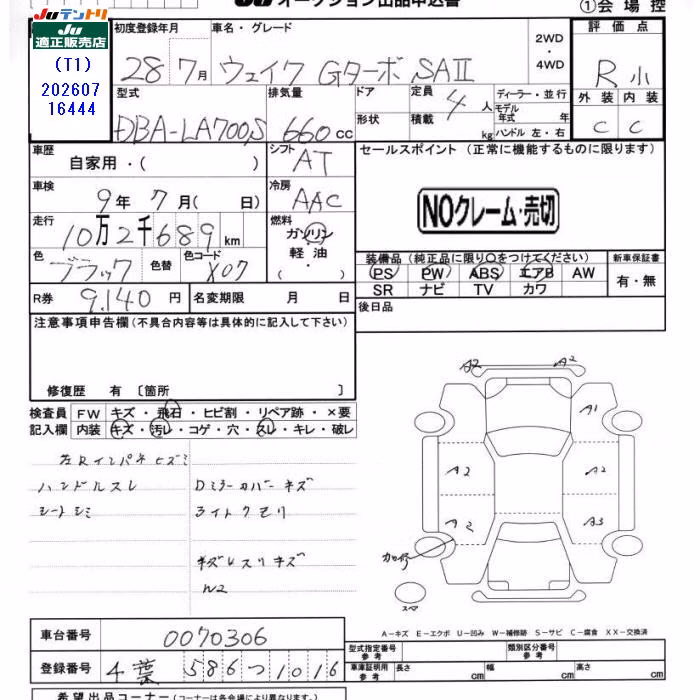 JU オークション出品申込書
① 会場控
JUテントリ
JU
適正販売店
(T1)
202607
16444
初度登録年月
28 7月
車名・グレード
ウェイク Gターボ SAⅡ
2WD
・
4WD
評価点
R 小
外装 内装
C C
型式
DBA-LA700S
排気量
660 cc
ドア
形状
定員
4 人
積載
kg
ディーラー・並行
モデル
年式 年
ハンドル 左・右
車歴
自家用・( )
シフト
AT
セールスポイント (正常に機能するものに限ります)
NOクレーム・売切
車検
9年 7月( 日)
冷房
AAC
走行
10万2千689km
燃料
ガソリン
軽油
・
色
ブラック
色替
色コード
X07
装備品 (純正品に限り○をつけてください)
PS PW ABS エアB AW
SR ナビ TV カワ
新車保証書
有・無
R券 9,140 円
名変期限 月 日
後日品
注意事項申告欄(不具合内容等は具体的に記入して下さい)
修復歴 有 〔箇所 〕
検査員
記入欄
FW キズ・飛石・ヒビ割・リペア跡・×要
内装 キズ・汚レ・コゲ・穴・スレ・キレ・破レ
左Rインパネヒズミ
ハンドルスレ
シートシミ
Dミラーカバーキズ
ライトクモリ
W2
A2 A2
A1
A2 A2
A2 A3
スペア
A-キズ E-エクボ U-凹み W-補修跡 S-サビ C-腐食 XX-交換済
車台番号 0070306
登録番号 千葉 586 つ 1016
型式指定番号
参考
類別区分番号
参考
車庫証明用
参考
長さ cm 幅 cm 高さ cm
希望出品コーナー(コーナーは各会場により異なります。)